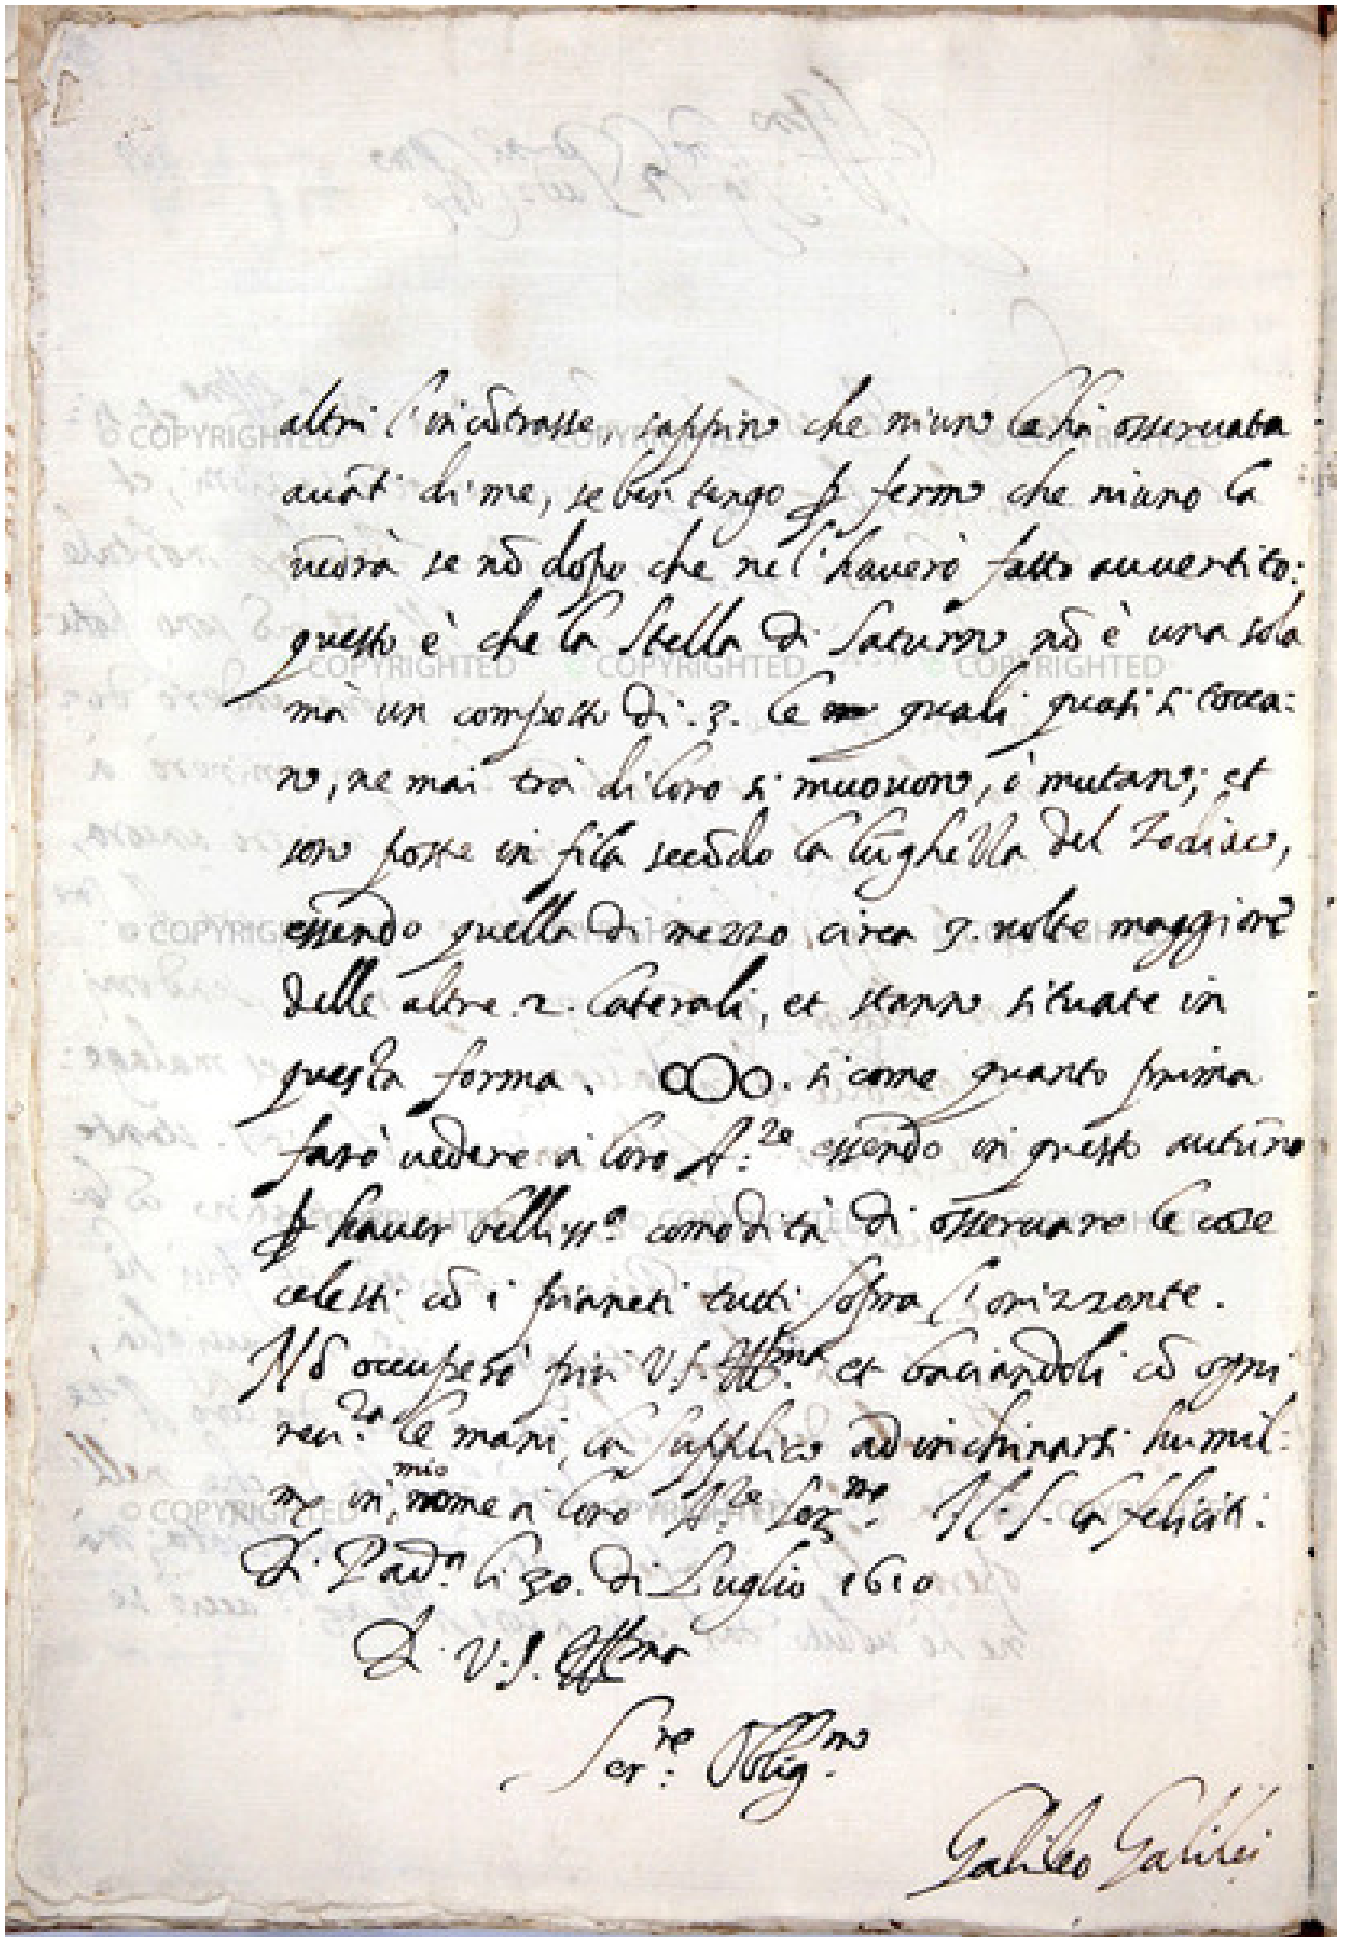 altri l'incōtrasse, sappino che niuno la ha osservata
auāti di me, se ben tengo p fermo che niuno la
uedrà se nō dopo che ne l'hauerò fatto auuertito:
questo è che la Stella di Saturno nō è una sola
mà un composto di .3. le quali quasi si tocca:
no, ne mai trà di loro si muouono, ò mutano; et
sono poste in fila secōdo la lūghezza del zodiaco,
essendo quella di mezzo circa 3. uolte maggiore
delle altre .2. laterali, et stanno situate in
questa forma. oOo. si come quanto prima
farò uedere à loro A.ze essendo in questo autūno
p hauer belliss.o comodità di osseruare le cose
celesti cō i pianeti tutti sopra l'orizzonte.
Nō occuperò più V S. Ill.ma et baciandoli cō ogni
reu.za le mani, la supplico ad inchinarsi humil:
me in mio nome a loro A.ze Ser.me. N. S. la feliciti.
Di Pad.a li 30. di Luglio 1610
Di V. S. Ill.ma
Ser.re Oblig.mo
Galileo Galilei
© COPYRIGHTED